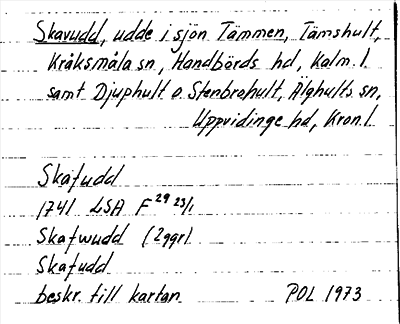 Skavudd, udde i sjön Tämmen, Tämshult,
Kråksmåla sn, Handbörds hd, Kalm. l.
samt Djuphult o. Stenbrohult, Älghults sn,
Uppvidinge hd, Kron. l.
Skafudd
1741 LSA F 29 23/1
Skafwudd (2ggr)
Skafudd
beskr. till kartan POL 1973